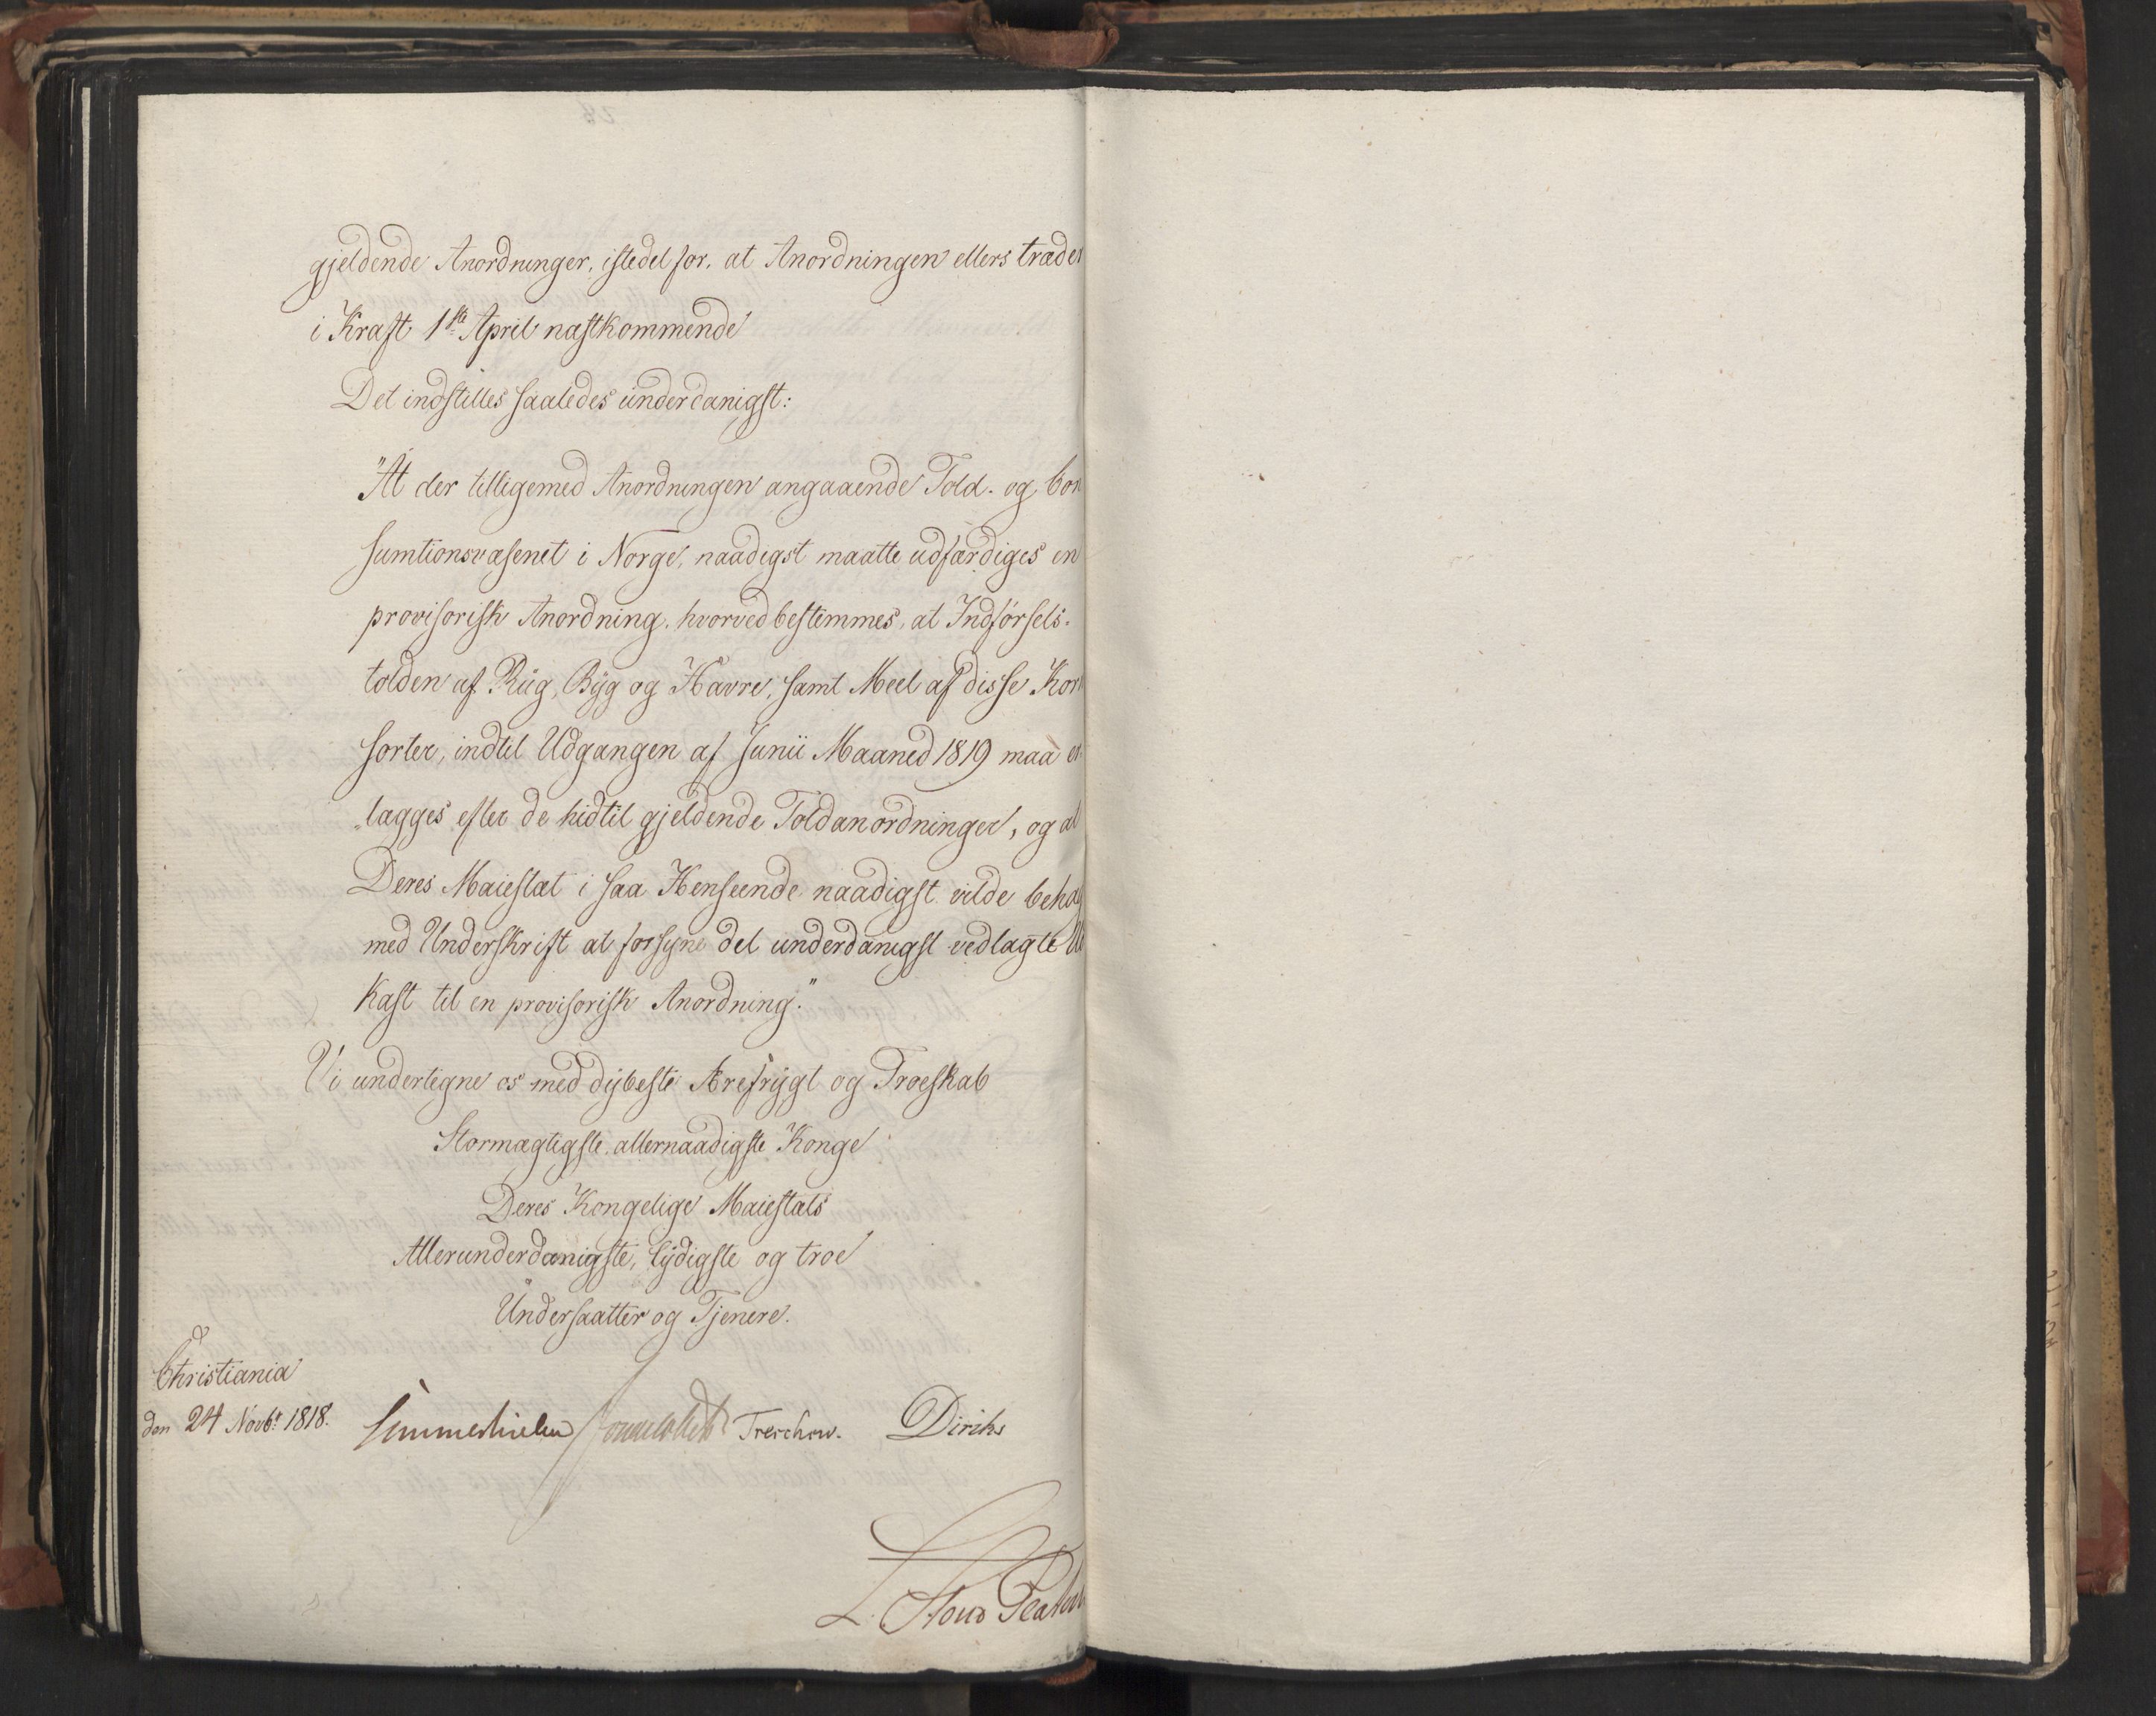 gjeldende Anordninger, istedet for, at Anordningen ellers træder
i Kraft 1ste April næstkommende
Det indstilles saaledes underdanigst:
"At der tilligemed Anordningen angaaende Told- og Con
sumtionsvæsenet i Norge, naadigst maatte udfærdiges en
provisorisk Anordning, hvorved bestemmes, at Indførsels-
tolden af Rug, Byg og Havre, samt Meel af disse Korn
sorter, indtil Udgangen af Junii Maaned 1819 maa er
lægges efter de hidtil gjeldende Toldanordninger, og at
Deres Maiestæt i saa Henseende naadigst vilde behag
med Underskrift at forsyne det underdanigst vedlagte Ud
kast til en provisorisk Anordning."
Vi undertegne os med dybeste Ærefrygt og Troeskab
Stormægtigste, allernaadigste Konge
Deres Kongelige Maiestæts
Allerunderdanigste, lydigste og troe
Undersaatter og Tjenere.
Christiania
den 24 Novbr 1818.
Sommerhielm Treschow. Diriks
L. Stoud Platou